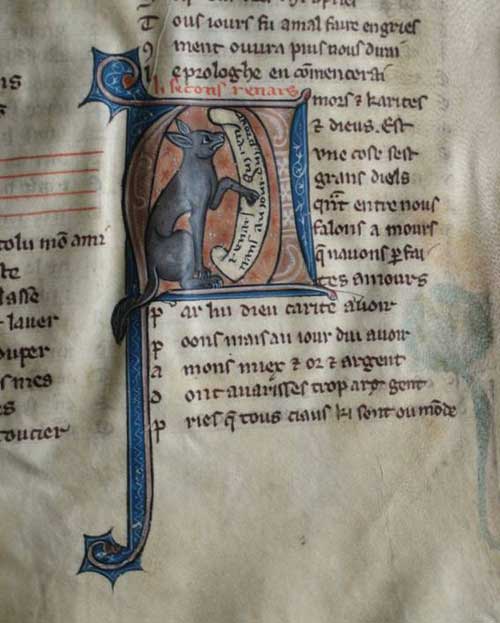 Tous iours fu a mal faire engries
ment ouura puis nous dirai
e prologhe en cōmencerai
li secons renars
mors & karites
& dieus. Est
vne cose sest
grans diels
entre nous
falons a mours
q̄ nauons ꝑfai
tes amours
par lui dieu carite auoir
poons mais au iour dui auoir
amons miex & or & argent
dont auarisses trop art gent
pries q̄ tous ciaus ki sont ou mōde
renars
tolu mō ami
ste
lasse
lauer
ouper
s mes
es
toucier